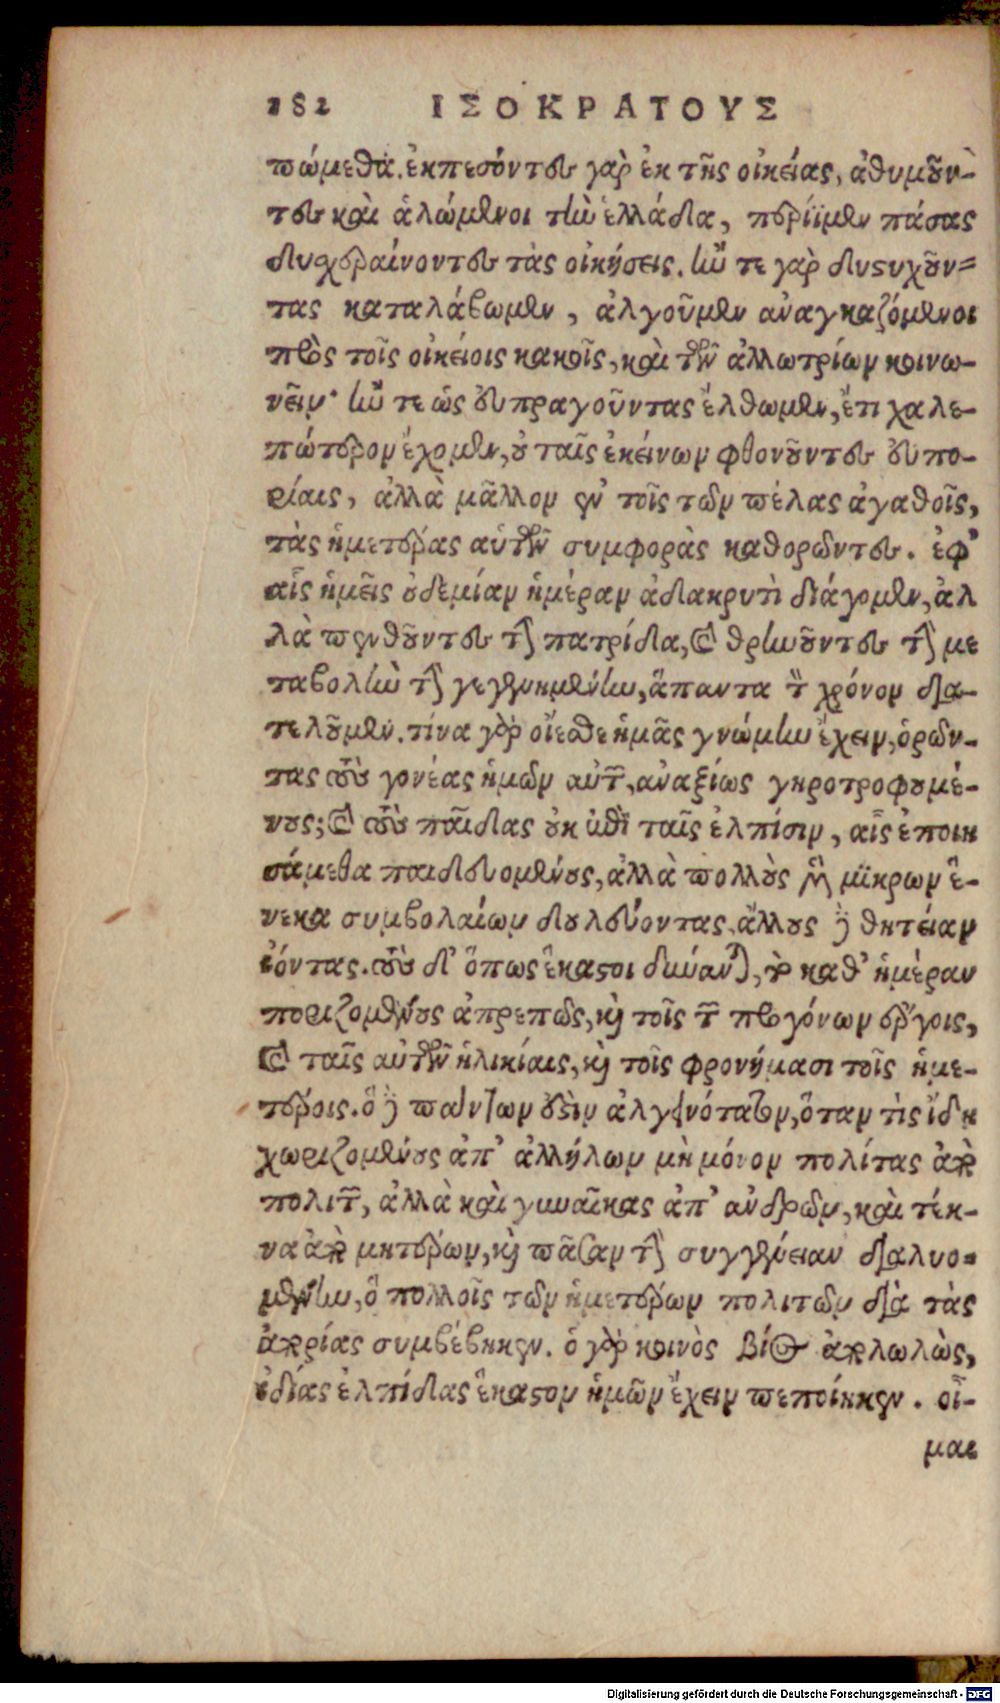 182 ΙΣΟΚΡΑΤΟΥΣ
πώμεθα. ἐκπεσόντες γὰρ ἐκ τῆς οἰκείας, ἀθυμοῦν-
τες καὶ ἀλώμενοι τὴν ἑλλάδα, περίϊμεν πάσας
δυσχεραίνοντες τὰς οἰκήσεις. ἤν τε γὰρ δυστυχοῦν-
τας καταλάβωμεν, ἀλγοῦμεν ἀναγκαζόμενοι
πρὸς τοῖς οἰκείοις κακοῖς, καὶ τῶν ἀλλωτρίων κοινω-
νεῖν· ἤν τε ὡς εὐπραγοῦντας ἔλθωμεν, ἔτι χαλε-
πώτερον ἔχομεν, οὐ ταῖς ἐκείνων φθονοῦντες εὐπο-
ρίαις, ἀλλὰ μᾶλλον ἐν τοῖς τῶν πέλας ἀγαθοῖς,
τὰς ἡμετέρας αὑτῶν συμφορὰς καθορῶντες. ἐφ'
αἷς ἡμεῖς οὐδεμίαν ἡμέραν ἀδακρυτὶ διάγομεν, ἀλ
λὰ πενθοῦντες τὴν πατρίδα, καὶ θρηνοῦντες τὴν με
ταβολὴν τὴν γεγενημένην, ἅπαντα τὸν χρόνον δια-
τελοῦμεν. τίνα γὰρ οἴεσθε ἡμᾶς γνώμην ἔχειν, ὁρῶν-
τας τοὺς γονέας ἡμῶν αὐτῶν, ἀναξίως γηροτροφουμέ-
νους; καὶ τοὺς παῖδας οὐκ ἐπὶ ταῖς ἐλπίσιν, αἷς ἐποιη
σάμεθα παιδευομένους, ἀλλὰ πολλοὺς μὲν μϊκρῶν ἕ-
νεκα συμβολαίων δουλεύοντας, ἄλλους δὲ θητείαν
ἰόντας. τοὺς δ' ὅπως ἕκαστοι δύνανται, τὰ καθ' ἡμέραν
ποριζομένους ἀπρεπῶς, καὶ τοῖς τῶν προγόνων ἔργοις,
καὶ ταῖς αὑτῶν ἡλικίαις, καὶ τοῖς φρονήμασι τοῖς ἡμε-
τέροις. ὃ δὲ πάντων ἐστὶν ἀλγεινότατον, ὅταν τὶς ἴδη
χωριζομένους ἀπ' ἀλλήλων μὴ μόνον πολίτας ἀπὸ
πολιτῶν, ἀλλὰ καὶ γυναῖκας ἀπ' ἀνδρῶν, καὶ τέκ-
να ἀπὸ μητέρων, καὶ πᾶσαν τὴν συγγένειαν διαλυο-
μένην, ὃ πολλοῖς τῶν ἡμετέρων πολιτῶν διὰ τὰς
ἀπορίας συμβέβηκεν. ὁ γὰρ κοινὸς βίος ἀπολωλὼς,
ἰδίας ἐλπίδας ἕκαστον ἡμῶν ἔχειν πεποίηκεν. οἶ-
μαι
Digitalisierung gefördert durch die Deutsche Forschungsgemeinschaft · DFG